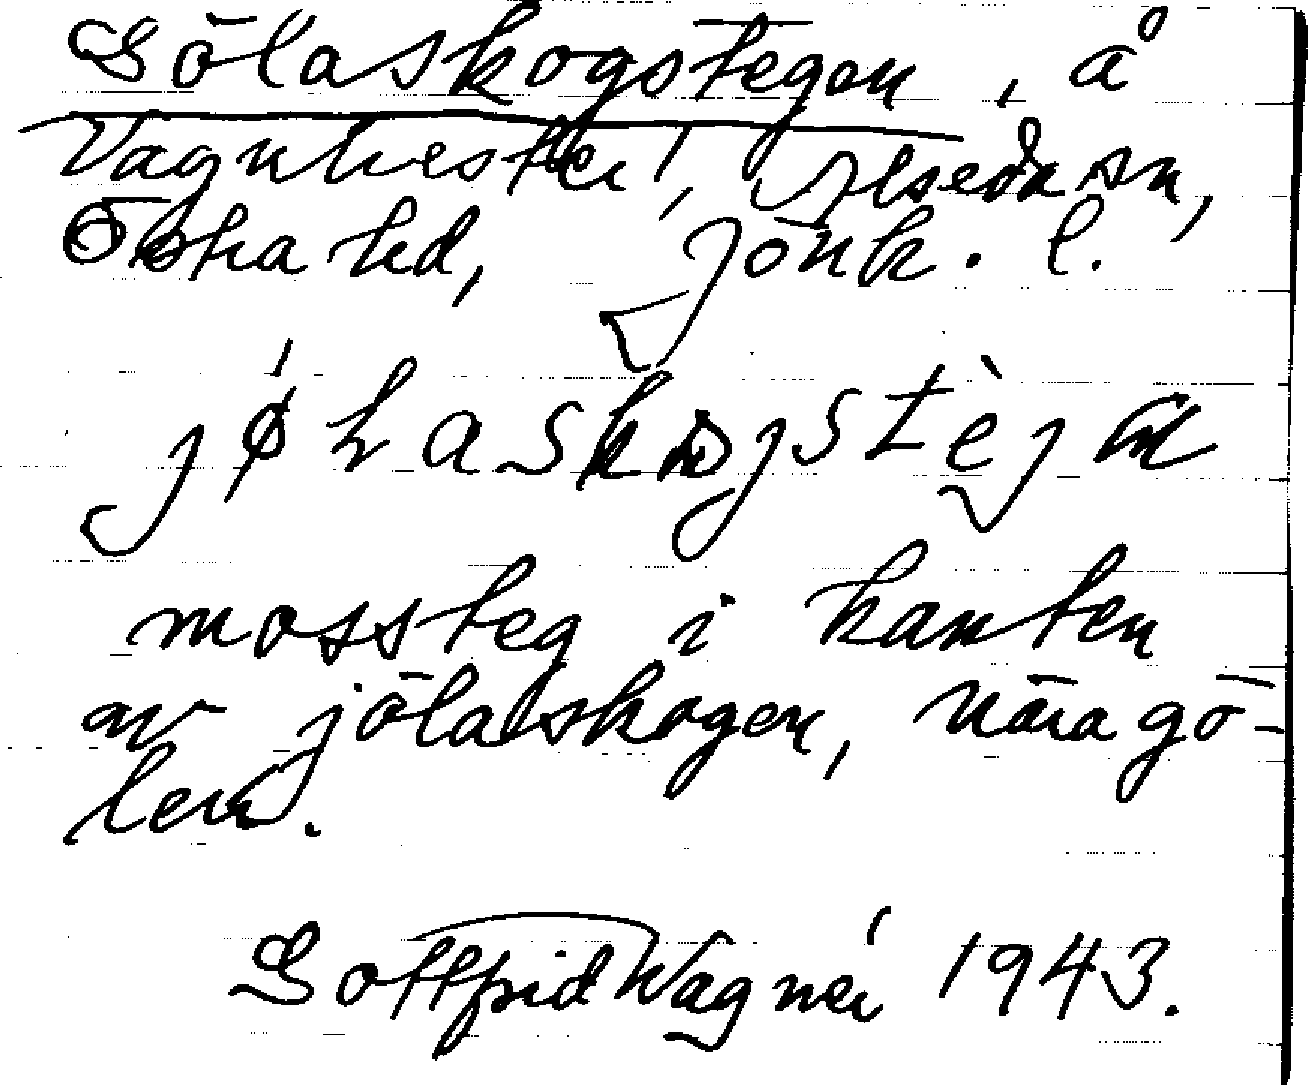 Gölaskogstegen, å
Vagnhester, Alseda sn,
Östra hd, Jönk. l.
mossteg i kanten
av jölaskogen, nära gö-
len.
Gottfrid Wagnér 1943.